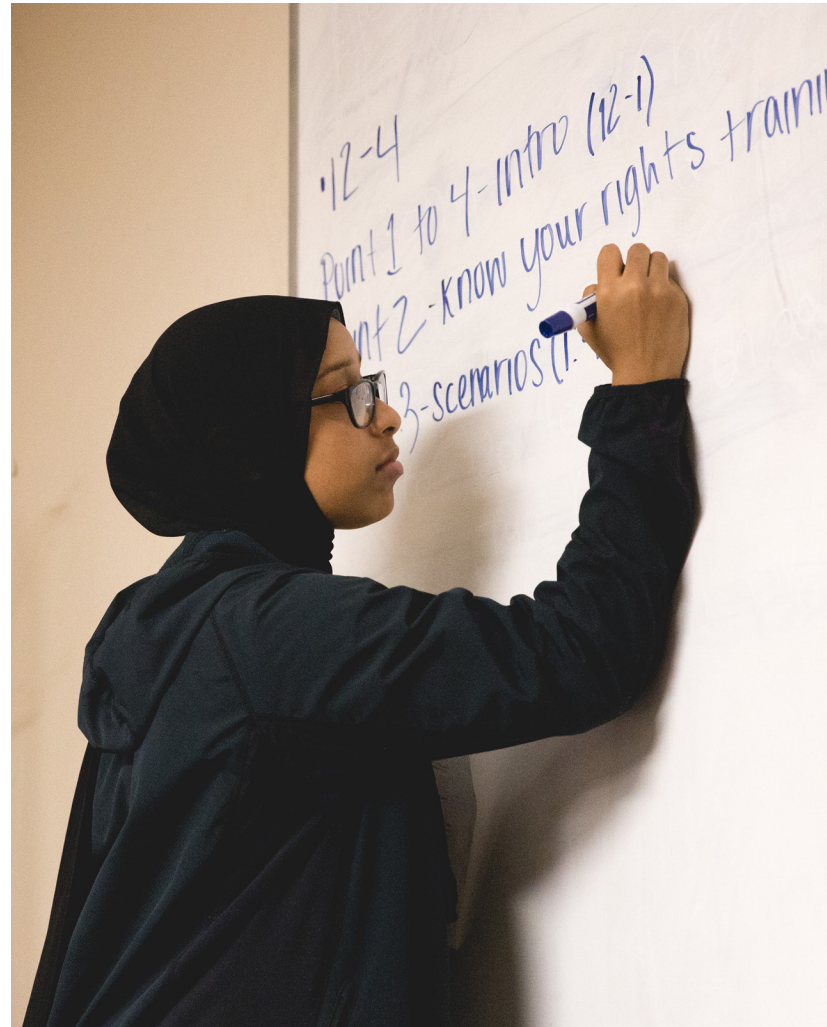 •12-4
Point 1 to 4-intro (12-1)
2-know your rights
3-scenarios (1: